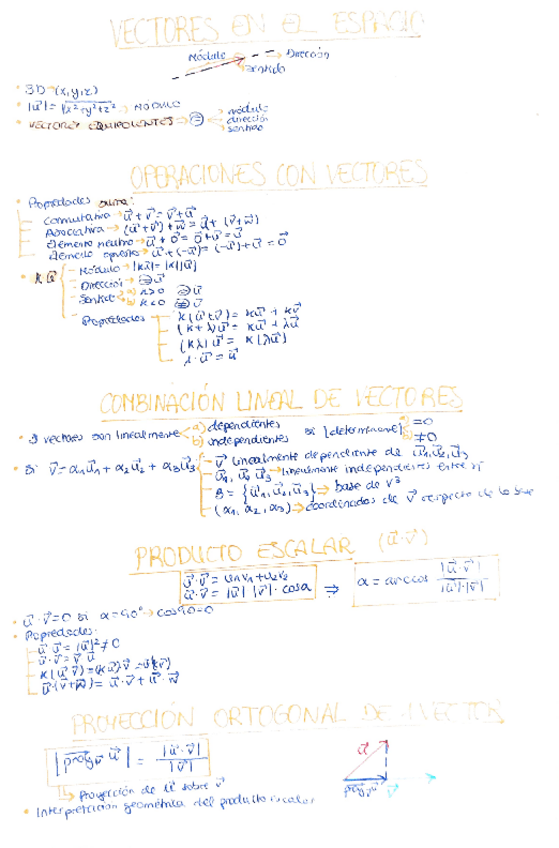 VECTORES EN EL ESPACIO
Módulo Dirección
sentido
• 3D → (x,y,z)
• |u⃗| = √x²+y²+z² → MÓDULO
• VECTORES EQUIPOLENTES → = módulo
dirección
sentido
OPERACIONES CON VECTORES
• Propiedades suma:
Conmutativa → u⃗ + v⃗ = v⃗ + u⃗
Asociativa → (u⃗ + v⃗) + w⃗ = u⃗ + (v⃗ + w⃗)
Elemento neutro → u⃗ + 0⃗ = 0⃗ + u⃗ = u⃗
Elemento opuesto → u⃗ + (-u⃗) = (-u⃗) + u⃗ = 0⃗
• k u⃗ Módulo → |ku⃗| = |k||u⃗|
Dirección → = u⃗
Sentido a) k>0 = u⃗
b) k<0 ≠ u⃗
Propiedades k(u⃗+v⃗) = ku⃗ + kv⃗
(k+λ)u⃗ = ku⃗ + λu⃗
(kλ)u⃗ = k(λu⃗)
1·u⃗ = u⃗
COMBINACIÓN LINEAL DE VECTORES
• 3 vectores son linealmente a) dependientes si |determinante| a) =0
b) independientes b) ≠0
• Si v⃗ = α₁u⃗₁ + α₂u⃗₂ + α₃u⃗₃ v⃗ linealmente dependiente de u⃗₁,u⃗₂,u⃗₃
u⃗₁, u⃗₂, u⃗₃ → linealmente independientes entre sí
B = {u⃗₁,u⃗₂,u⃗₃} → base de V³
(α₁, α₂, α₃) → coordenadas de v⃗ respecto de la base
PRODUCTO ESCALAR (u⃗·v⃗)
u⃗·v⃗ = u₁v₁+u₂v₂
u⃗·v⃗ = |u⃗| |v⃗|·cosα ⇒ α = arccos |u⃗·v⃗| / |u⃗|·|v⃗|
• u⃗·v⃗=0 si α=90° → cos90=0
• Propiedades:
u⃗·u⃗ = |u⃗|² ≠ 0
u⃗·v⃗ = v⃗·u⃗
k(u⃗·v⃗) = (ku⃗)·v⃗ = u⃗(kv⃗)
u⃗·(v⃗+w⃗) = u⃗·v⃗ + u⃗·w⃗
PROYECCIÓN ORTOGONAL DE 1 VECTOR
|proy v⃗ u⃗| = |u⃗·v⃗| / |v⃗|
u⃗
proy v⃗ u⃗ v⃗
→ Proyección de u⃗ sobre v⃗
• Interpretación geométrica del producto escalar